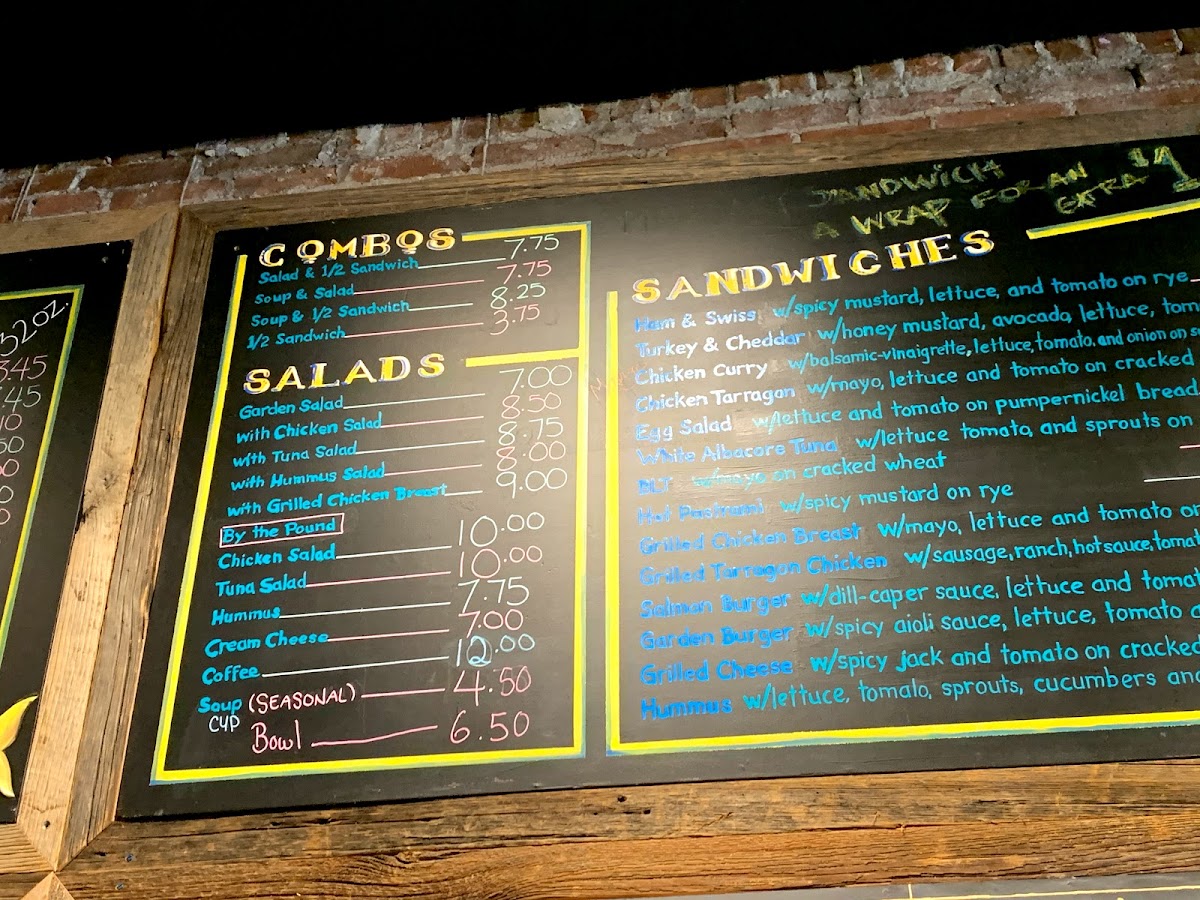 32oz.
3.45
.45
COMBOS
Salad & 1/2 Sandwich 7.75
Soup & Salad 7.75
Soup & 1/2 Sandwich 8.25
1/2 Sandwich 3.75
SALADS
Garden Salad 7.00
with Chicken Salad 8.50
with Tuna Salad 8.75
with Hummus Salad 8.00
with Grilled Chicken Breast 9.00
By the Pound
Chicken Salad 10.00
Tuna Salad 10.00
Hummus 7.75
Cream Cheese 7.00
Coffee 12.00
Soup (SEASONAL) 4.50
CUP
Bowl 6.50
SANDWICH
A WRAP FOR AN
EXTRA $1
SANDWICHES
Ham & Swiss w/spicy mustard, lettuce, and tomato on rye
Turkey & Cheddar w/honey mustard, avocado, lettuce, tom
Chicken Curry w/balsamic-vinaigrette, lettuce, tomato, and onion on s
Chicken Tarragon w/mayo, lettuce and tomato on cracked
Egg Salad w/lettuce and tomato on pumpernickel bread
White Albacore Tuna w/lettuce tomato, and sprouts on
BLT w/mayo on cracked wheat
Hot Pastrami w/spicy mustard on rye
Grilled Chicken Breast w/mayo, lettuce and tomato on
Grilled Tarragon Chicken w/sausage, ranch, hot sauce, tomat
Salmon Burger w/dill-caper sauce, lettuce and tomat
Garden Burger w/spicy aioli sauce, lettuce, tomato
Grilled Cheese w/spicy jack and tomato on cracked
Hummus w/lettuce, tomato, sprouts, cucumbers and